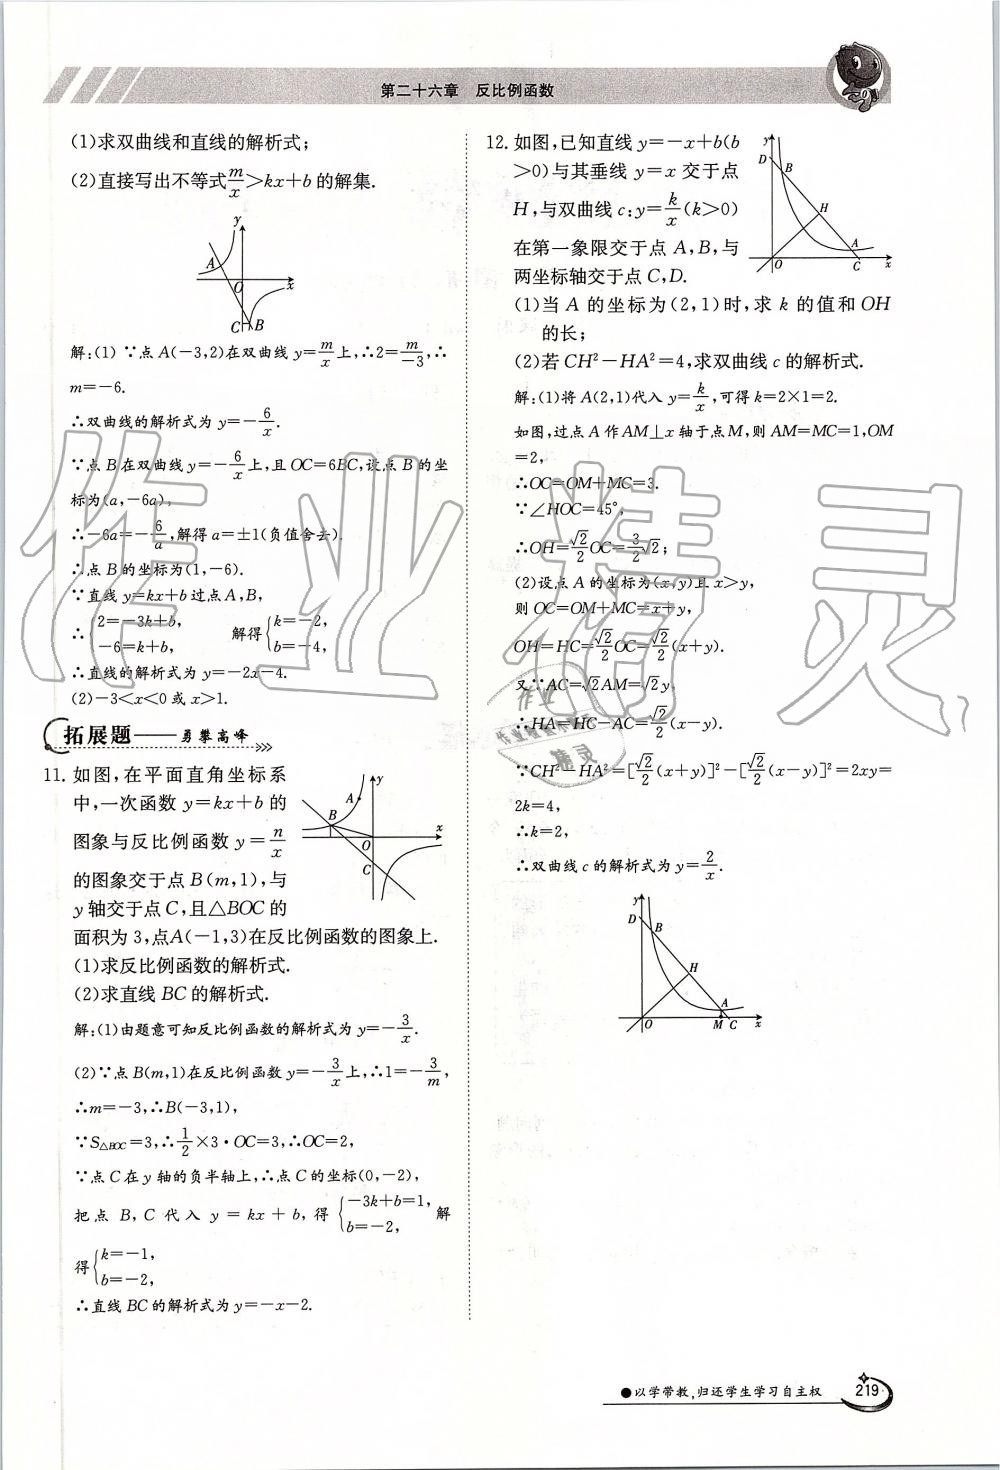 第二十六章　反比例函数
(1)求双曲线和直线的解析式;
(2)直接写出不等式m/x>kx+b的解集.
y
A
O
x
C
B
解:(1)∵点A(-3,2)在双曲线y=m/x上,∴2=m/-3,∴
m=-6.
∴双曲线的解析式为y=-6/x.
∵点B在双曲线y=-6/x上,且OC=6BC,设点B的坐
标为(a,-6a),
∴-6a=-6/a,解得a=±1(负值舍去).
∴点B的坐标为(1,-6).
∵直线y=kx+b过点A,B,
∴{2=-3k+b, -6=k+b, 解得{k=-2, b=-4,
∴直线的解析式为y=-2x-4.
(2)-3<x<0或x>1.
拓展题——勇攀高峰
11.如图,在平面直角坐标系
中,一次函数y=kx+b的
图象与反比例函数y=n/x
的图象交于点B(m,1),与
y轴交于点C,且△BOC的
面积为3,点A(-1,3)在反比例函数的图象上.
y
A
B
x
O
C
(1)求反比例函数的解析式.
(2)求直线BC的解析式.
解:(1)由题意可知反比例函数的解析式为y=-3/x.
(2)∵点B(m,1)在反比例函数y=-3/x上,∴1=-3/m,
∴m=-3,∴B(-3,1),
∵S△BOC=3,∴1/2×3·OC=3,∴OC=2,
∵点C在y轴的负半轴上,∴点C的坐标(0,-2),
把点B,C代入y=kx+b,得{-3k+b=1, b=-2, 解
得{k=-1, b=-2,
∴直线BC的解析式为y=-x-2.
12.如图,已知直线y=-x+b(b
>0)与其垂线y=x交于点
H,与双曲线c:y=k/x(k>0)
在第一象限交于点A,B,与
两坐标轴交于点C,D.
y
D
B
H
A
O
C
x
(1)当A的坐标为(2,1)时,求k的值和OH
的长;
(2)若CH²-HA²=4,求双曲线c的解析式.
解:(1)将A(2,1)代入y=k/x,可得k=2×1=2.
如图,过点A作AM⊥x轴于点M,则AM=MC=1,OM
=2,
∴OC=OM+MC=3.
∵∠HOC=45°,
∴OH=√2/2OC=3/2√2;
(2)设点A的坐标为(x,y)且x>y,
则OC=OM+MC=x+y,
OH=HC=√2/2OC=√2/2(x+y).
又∵AC=√2AM=√2y,
∴HA=HC-AC=√2/2(x-y).
∵CH²-HA²=[√2/2(x+y)]²-[√2/2(x-y)]²=2xy=
2k=4,
∴k=2,
∴双曲线c的解析式为y=2/x.
y
D
B
H
A
O
M C
x
●以学带教,归还学生学习自主权
219
作业精灵